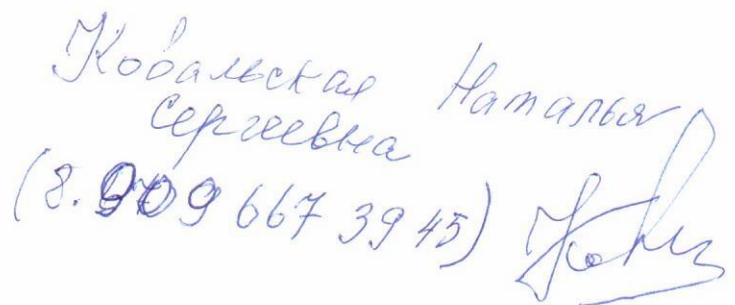 Ковальская Наталья
Сергеевна
(8.909 667 39 45)